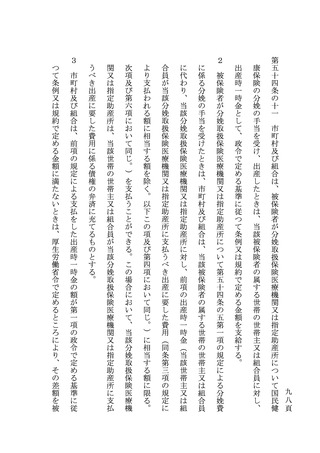 九八頁
第五十四条の十一　市町村及び組合は、被保険者が分娩取扱保険医療機関又は指定助産所について国民健
康保険の分娩の手当を受け、出産したときは、当該被保険者の属する世帯の世帯主又は組合員に対し、
出産時一時金として、政令で定める基準に従つて条例又は規約で定める金額を支給する。
２　被保険者が分娩取扱保険医療機関又は指定助産所について第五十四条の五第一項の規定による分娩費
に係る分娩の手当を受けたときは、市町村及び組合は、当該被保険者の属する世帯の世帯主又は組合員
に代わり、当該分娩取扱保険医療機関又は指定助産所に対し、前項の出産時一時金（当該世帯主又は組
合員が当該分娩取扱保険医療機関又は指定助産所に支払うべき出産に要した費用（同条第三項の規定に
より支払われる額に相当する額を除く。以下この項及び第四項において同じ。）に相当する額に限る。
次項及び第六項において同じ。）を支払うことができる。この場合において、当該分娩取扱保険医療機
関又は指定助産所は、当該世帯の世帯主又は組合員が当該分娩取扱保険医療機関又は指定助産所に支払
うべき出産に要した費用に係る債権の弁済に充てるものとする。
３　市町村及び組合は、前項の規定による支払をした出産時一時金の額が第一項の政令で定める基準に従
つて条例又は規約で定める金額に満たないときは、厚生労働省令で定めるところにより、その差額を被